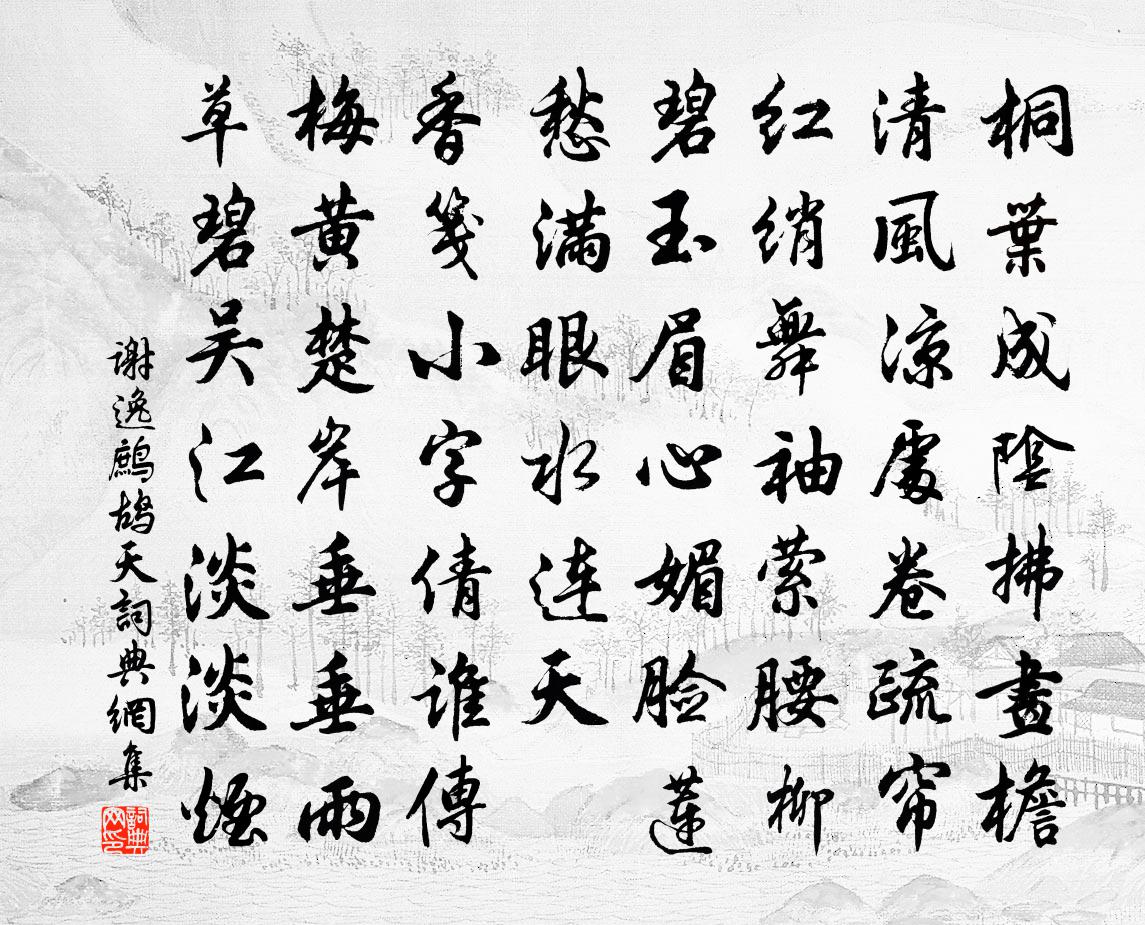 桐葉成陰拂畫檐
清風涼處卷疏帘
红绡舞袖萦腰柳
碧玉眉心媚脸蓮
愁满眼水连天
香笺小字倩谁傳
梅黄楚岸垂垂雨
草碧吴江淡淡煙
谢逸鷓鴣天詞典網集
詞典网印